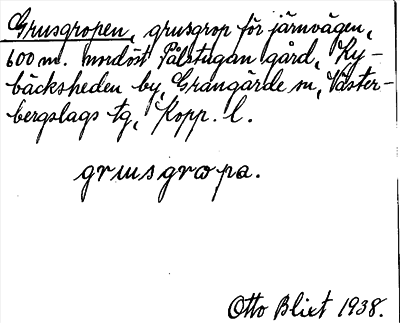 Grusgropen, grusgrop för järnvägen,
600 m. nordöst Pålstugan gård, Ky-
bäcksheden by, Grangärde sn, Väster-
bergslags tg, Kopp. l.
grusgropa.
Otto Blixt 1938.